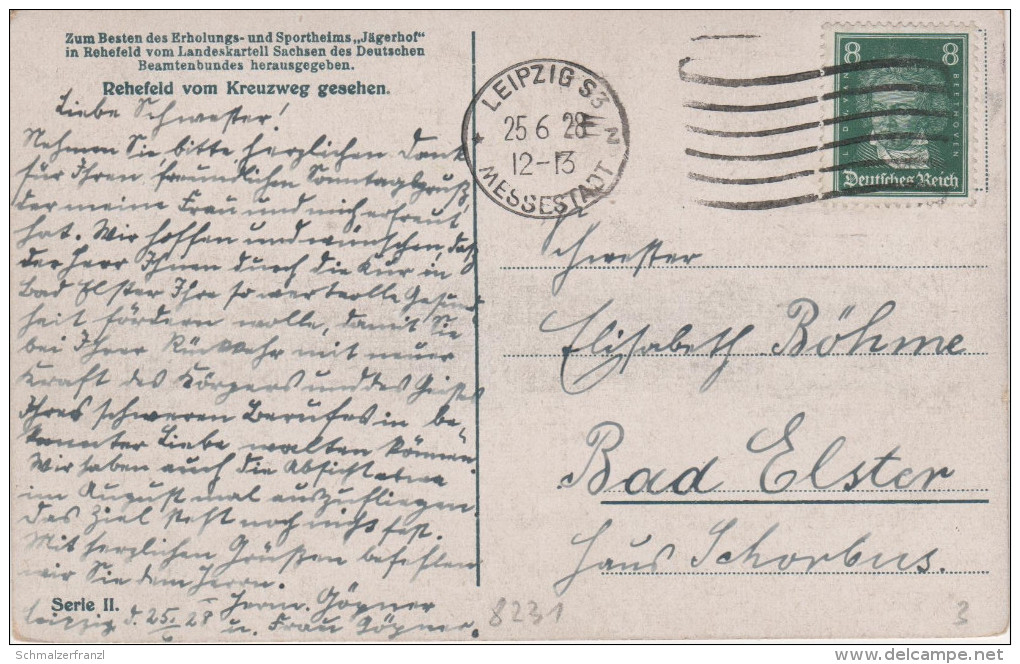 Zum Besten des Erholungs- und Sportheims „Jägerhof"
in Rehefeld vom Landeskartell Sachsen des Deutschen
Beamtenbundes herausgegeben.
Rehefeld vom Kreuzweg gesehen.
Liebe Schwester!
Nehmen Sie, bitte, herzlichen Dank
für Ihren freundlichen Sonntagsgruß,
der meine Frau und mich erfreut
hat. Wir hoffen und wünschen, daß
der Herr Ihnen durch die Kur in
Bad Elster Ihre so wertvolle Gesund
heit fördern wolle, damit Sie
bei Ihrer Rückkehr mit neuer
Kraft des Körpers und des Geistes
Ihres schweren Berufes in be-
kannter Liebe walten können.
Wir haben auch die Absicht etwa
im August mal auszufliegen.
Das Ziel steht noch nicht fest.
Mit herzlichen Grüßen befehlen
wir Sie dem Herrn.
Herm. Göpner
u. Frau Göpner.
Leipzig d. 25. 28
Serie II.
LEIPZIG S3
25 6 28
12-13
MESSESTADT
8 8
LUDWIG VAN BEETHOVEN
Deutsches Reich
Schwester
Elisabeth Böhme
Bad Elster
Haus Schorbus.
8231
3
© Schmalzerfranzl